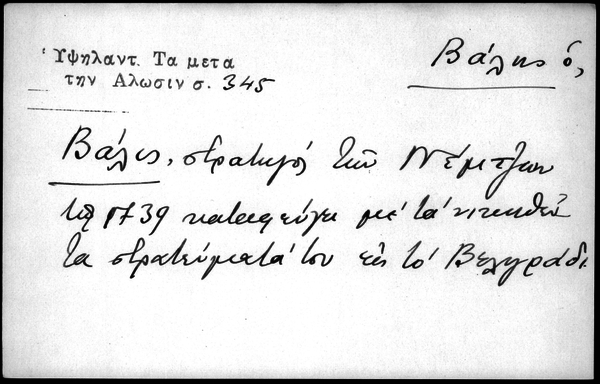 Ὑψηλαντ. Τα μετα
την Αλωσιν σ. 345
Βάλης ὁ,
Βάλις, στρατηγός τῶν Νέμτζων
τῷ 1739 καταφεύγει μέ τά νικηθέντα
τα στρατεύματά του εἰς τό Βελιγράδι